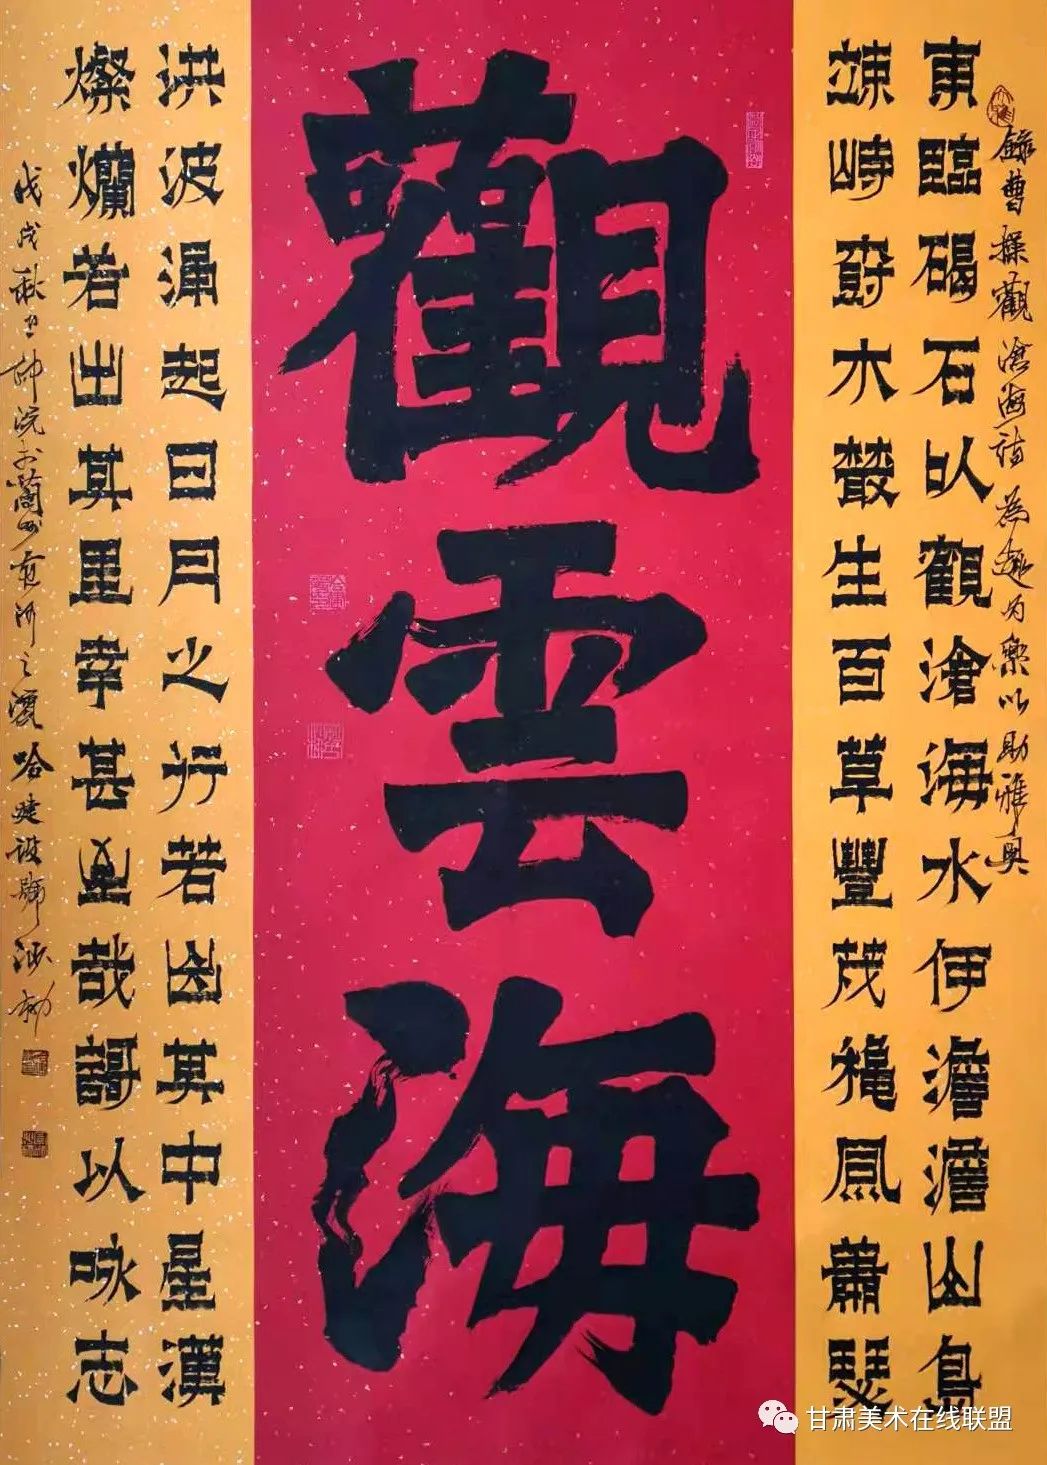 錄曹操觀滄海詩為趣為樂以助雅興
東臨碣石以觀滄海水伊澹澹山島
竦峙尌木叢生百草豐茂穐風蕭瑟
觀雲海
洪波涌起日月之行若出其中星漢
燦爛若出其里幸甚至哉謌以咏志
戊戌秋於蘭州黃河之濱哈建設
甘肃美术在线联盟